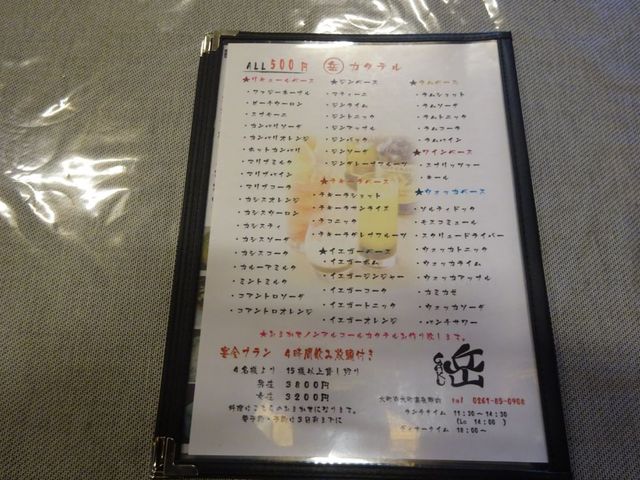 ALL 500円 岳 カクテル
★リキュールベース
・ファジーネーブル
・ピーチウーロン
・スプモーニ
・カンパリソーダ
・カンパリオレンジ
・ホットカンパリ
・マリブミルク
・マリブパイン
・マリブコーラ
・カシスオレンジ
・カシスウーロン
・カシスティ
・カシスソーダ
・カシスコーク
・カルーアミルク
・ミントミルク
・コアントロソーダ
・コアントロオレンジ
★ジンベース
・マティーニ
・ジンライム
・ジントニック
・ジンアップル
・ジンバック
・ジンソーダ
・ジングレープフルーツ
★テキーラベース
・テキーラショット
・テキーラサンライズ
・テコニック
・テキーラグレープフルーツ
★イエガーベース
・イエガーボム
・イエガージンジャー
・イエガーコーク
・イエガートニック
・イエガーオレンジ
★ラムベース
・ラムショット
・ラムソーダ
・ラムトニック
・ラムコーラ
・ラムパイン
★ワインベース
・スプリッツァー
・キール
★ウォッカベース
・ソルティドック
・モスコミュール
・スクリュードライバー
・ウォッカトニック
・ウォッカライム
・ウォッカアップル
・カミカゼ
・ウォッカソーダ
・バンチサワー
★おまかせノンアルコールカクテルお作り致します。
宴会プラン 4時間飲み放題付き
4名様より 15様以上貸し切り
男性 3800円
女性 3200円
料理はこちらのおまかせになります。
要予約・予約は3日前までに
岳
tel 0261-85-0908
ランチタイム 11:30~14:30
(Lo 14:00)
ディナータイム 18:00~